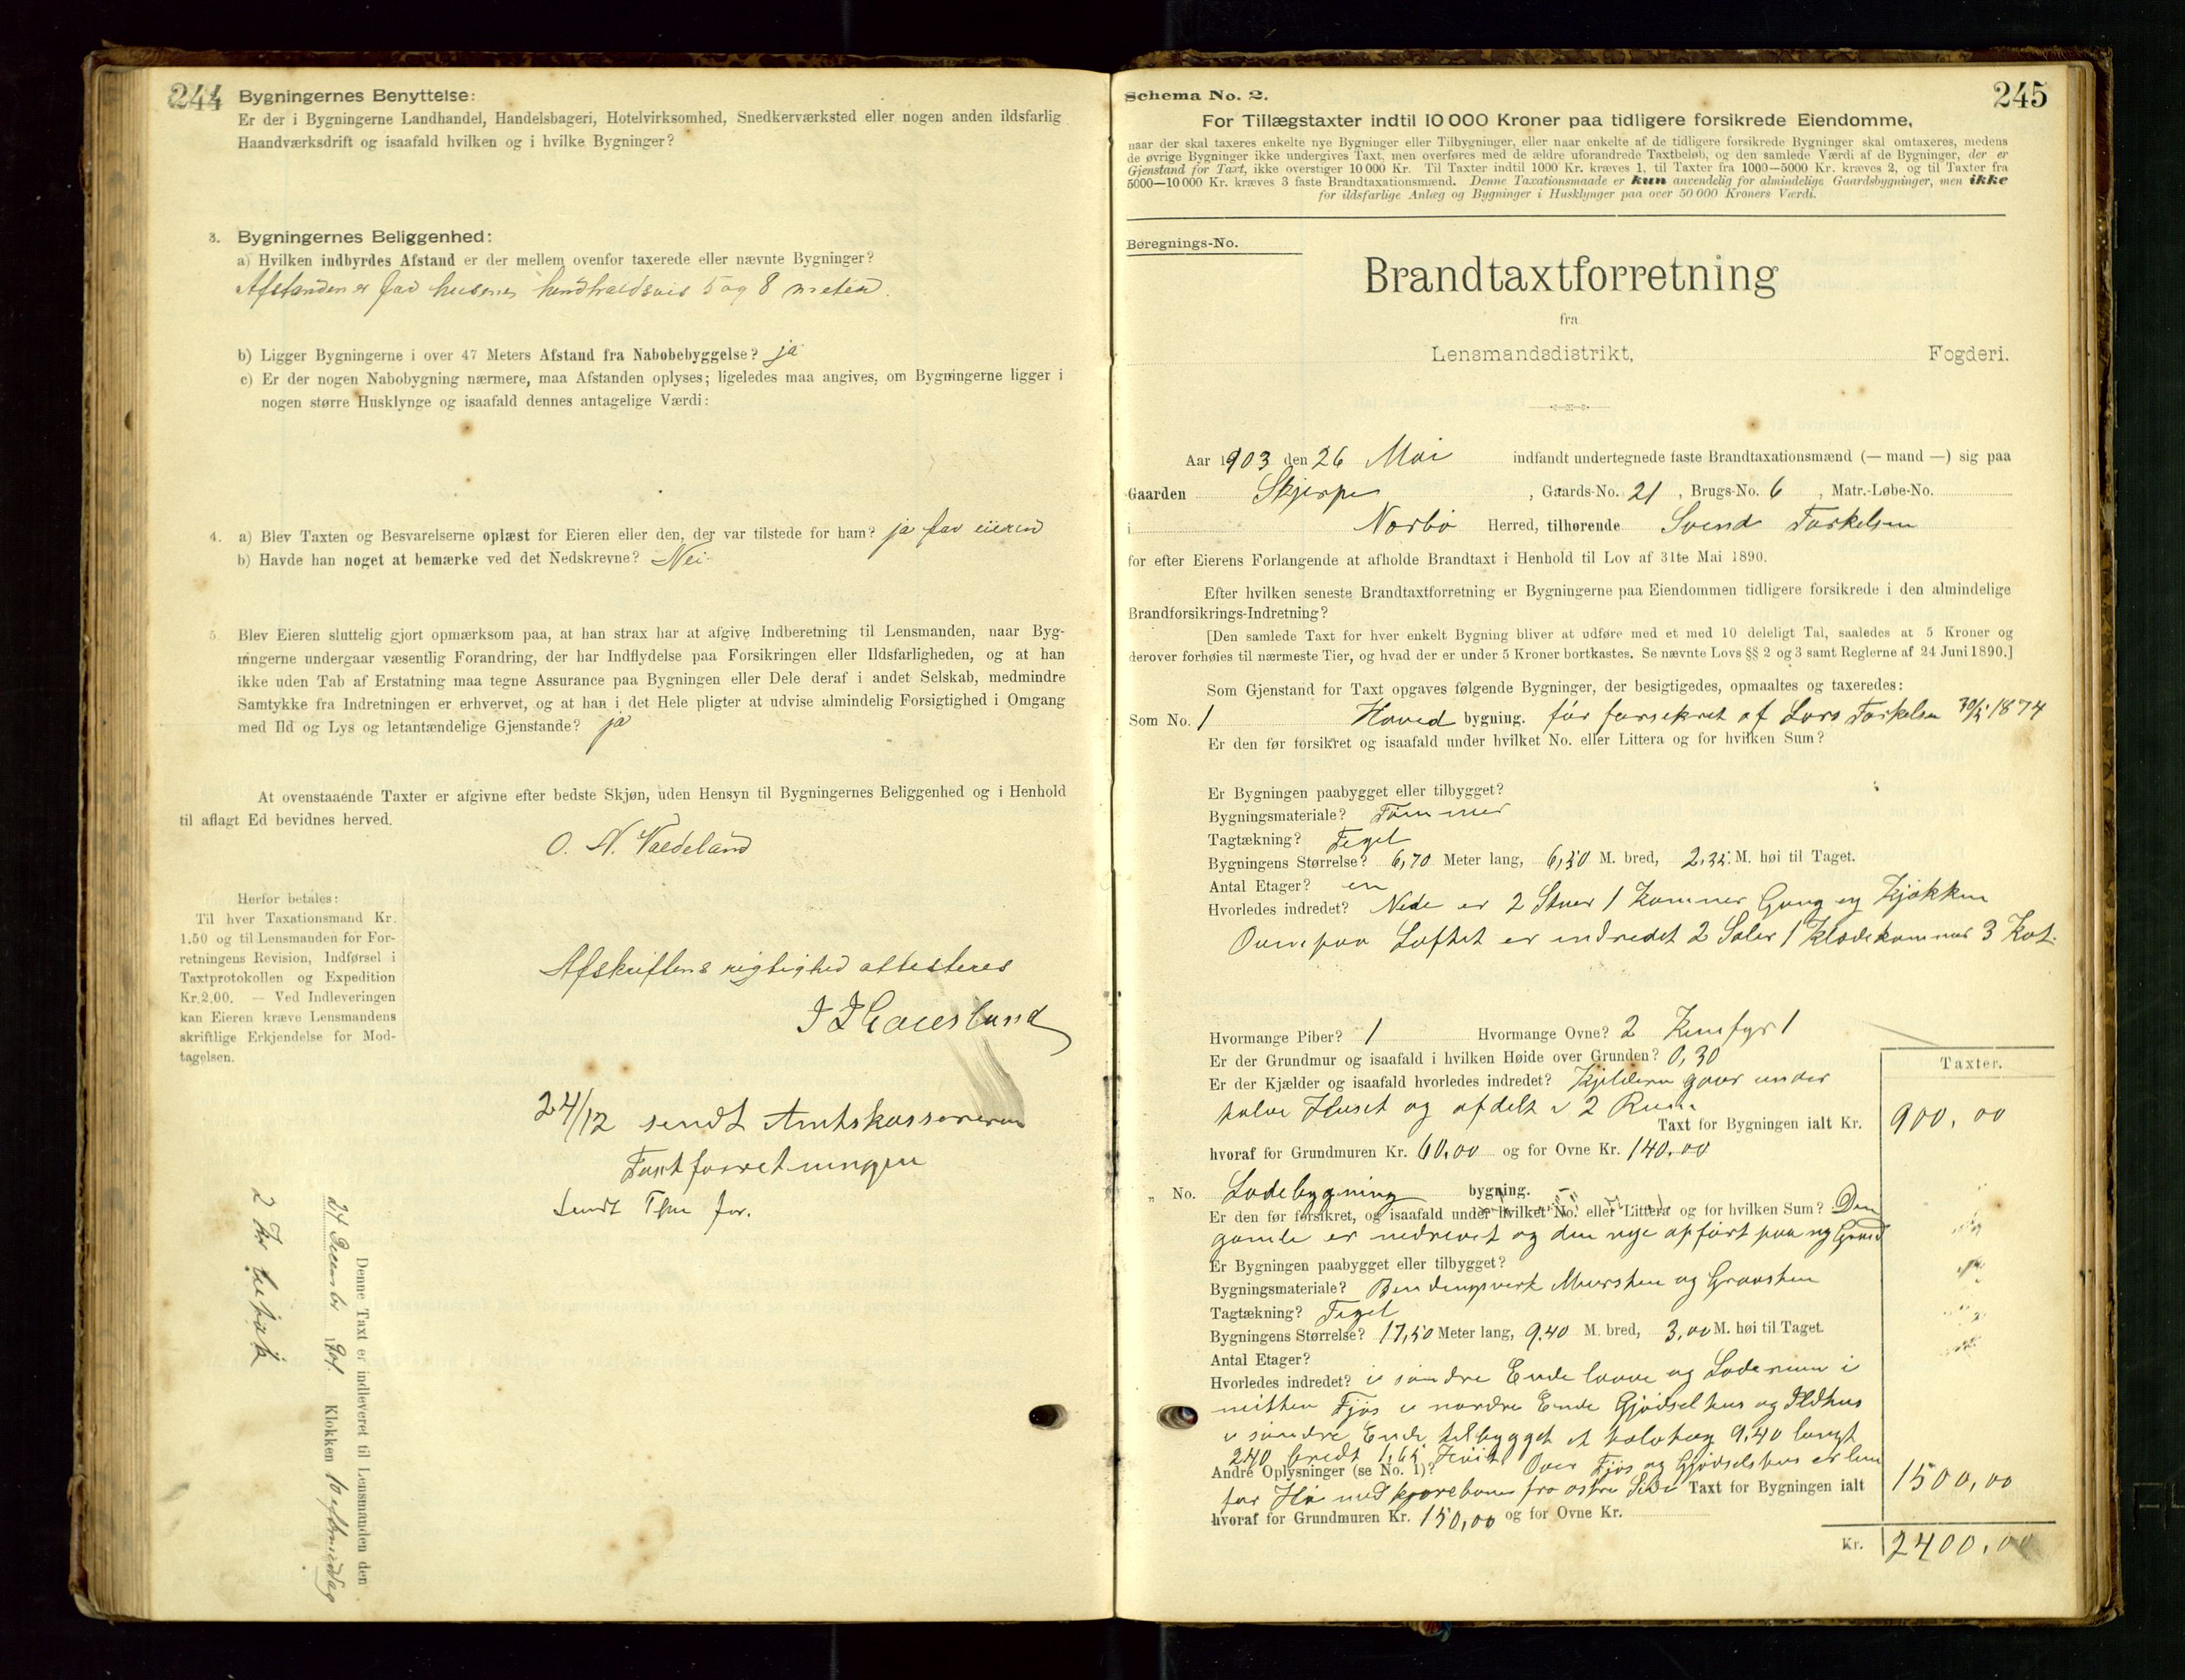 244
Bygningernes Benyttelse:
Er der i Bygningerne Landhandel, Handelsbageri, Hotelvirksomhed, Snedkerværksted eller nogen anden ildsfarlig
Haandværksdrift og isaafald hvilken og i hvilke Bygninger?
3. Bygningernes Beliggenhed:
a) Hvilken indbyrdes Afstand er der mellem ovenfor taxerede eller nævnte Bygninger?
Afstanden er for husene henholdsvis 5 og 8 meter.
b) Ligger Bygningerne i over 47 Meters Afstand fra Nabobebyggelse? ja
c) Er der nogen Nabobygning nærmere, maa Afstanden oplyses; ligeledes maa angives, om Bygningerne ligger i
nogen større Husklynge og isaafald dennes antagelige Værdi:
4. a) Blev Taxten og Besvarelserne oplæst for Eieren eller den, der var tilstede for ham? ja for eieren
b) Havde han noget at bemærke ved det Nedskrevne? Nei
5. Blev Eieren sluttelig gjort opmærksom paa, at han strax har at afgive Indberetning til Lensmanden, naar Byg-
ningerne undergaar væsentlig Forandring, der har Indflydelse paa Forsikringen eller Ildsfarligheden, og at han
ikke uden Tab af Erstatning maa tegne Assurance paa Bygningen eller Dele deraf i andet Selskab, medmindre
Samtykke fra Indretningen er erhvervet, og at han i det Hele pligter at udvise almindelig Forsigtighed i Omgang
med Ild og Lys og letantændelige Gjenstande? ja
At ovenstaaende Taxter er afgivne efter bedste Skjøn, uden Hensyn til Bygningernes Beliggenhed og i Henhold
til aflagt Ed bevidnes herved.
O. N. Vaedeland
Herfor betales:
Til hver Taxationsmand Kr.
1.50 og til Lensmanden for For-
retningens Revision, Indførsel i
Taxtprotokollen og Expedition
Kr. 2.00. — Ved Indleveringen
kan Eieren kræve Lensmandens
skriftlige Erkjendelse for Mod-
tagelsen.
Afskriftens rigtighed attesteres
24/12 sendt Amtskassereren
Taxtforretningen
Sendt
Denne Taxt er indleveret til Lensmanden den
24 December 1904. Klokken 10 eftermiddag
2 Kr betalt
245
Schema No. 2.
For Tillægstaxter indtil 10 000 Kroner paa tidligere forsikrede Eiendomme,
naar der skal taxeres enkelte nye Bygninger eller Tilbygninger, eller naar enkelte af de tidligere forsikrede Bygninger skal omtaxeres, medens
de øvrige Bygninger ikke undergives Taxt, men overføres med de ældre uforandrede Taxtbeløb, og den samlede Værdi af de Bygninger, der er
Gjenstand for Taxt, ikke overstiger 10 000 Kr. Til Taxter indtil 1000 Kr. kræves 1, til Taxter fra 1000—5000 Kr. kræves 2, og til Taxter fra
5000—10 000 Kr. kræves 3 faste Brandtaxationsmænd. Denne Taxationsmaade er kun anvendelig for almindelige Gaardsbygninger, men ikke
for ildsfarlige Anlæg og Bygninger i Husklynger paa over 50 000 Kroners Værdi.
Beregnings-No.
Brandtaxtforretning
fra
Lensmandsdistrikt, Fogderi.
Aar 1903 den 26 Mai indfandt undertegnede faste Brandtaxationsmænd (— mand —) sig paa
Gaarden Skjerpe, Gaards-No. 21, Brugs-No. 6, Matr.-Løbe-No.
i Nærbø Herred, tilhørende Svend Torkelsen
for efter Eierens Forlangende at afholde Brandtaxt i Henhold til Lov af 31te Mai 1890.
Efter hvilken seneste Brandtaxtforretning er Bygningerne paa Eiendommen tidligere forsikrede i den almindelige
Brandforsikrings-Indretning?
[Den samlede Taxt for hver enkelt Bygning bliver at udføre med et med 10 deleligt Tal, saaledes at 5 Kroner og
derover forhøies til nærmeste Tier, og hvad der er under 5 Kroner bortkastes. Se nævnte Lovs §§ 2 og 3 samt Reglerne af 24 Juni 1890.]
Som Gjenstand for Taxt opgaves følgende Bygninger, der besigtigedes, opmaaltes og taxeredes:
Som No. 1 Hoved bygning. før forsikret af Lars Torkelsen 30/5 1874
Er den før forsikret og isaafald under hvilket No. eller Littera og for hvilken Sum?
Er Bygningen paabygget eller tilbygget?
Bygningsmateriale? Tømmer
Tagtækning? Tegel
Bygningens Størrelse? 6,70 Meter lang, 6,50 M. bred, 2,35 M. høi til Taget.
Antal Etager? en
Hvorledes indredet? Nede er 2 Stuer 1 Kammer Gang og Kjøkken
Ovenpaa Loftet er indredet 2 Saler 1 Klædekammer 3 Kot.
Hvormange Piber? 1 Hvormange Ovne? 2 Komfyr 1
Er der Grundmur og isaafald i hvilken Høide over Grunden? 0,30
Er der Kjælder og isaafald hvorledes indredet? Kjelderen gaar under
halve Huset og afdelt i 2 Rum.
Taxter.
Taxt for Bygningen ialt Kr. 900,00
hvoraf for Grundmuren Kr. 60,00 og for Ovne Kr. 140,00
„ No. Ladebygning bygning.
Er den før forsikret, og isaafald under hvilket No. eller Littera og for hvilken Sum? Den
gamle er nedrevet og den nye opført paa ny Grund
Er Bygningen paabygget eller tilbygget?
Bygningsmateriale? Bendingsverk Mursten og Graasten
Tagtækning? Tegel
Bygningens Størrelse? 17,50 Meter lang, 9,40 M. bred, 3,00 M. høi til Taget.
Antal Etager?
Hvorledes indredet? i søndre Ende laave og Laderum i
mitten Fjøs i nordre Ende Gjødselhus og Ildhus
i søndre Ende tilbygget et halvtag 9,40 langt
2,40 bredt 1,65 Høit
Andre Oplysninger (se No. 1)? Over Fjøs og Gjødselshus er lem
for Hø med kjørebane fra østre Side Taxt for Bygningen ialt 1500,00
hvoraf for Grundmuren Kr. 150,00 og for Ovne Kr.
Kr. 2400,00